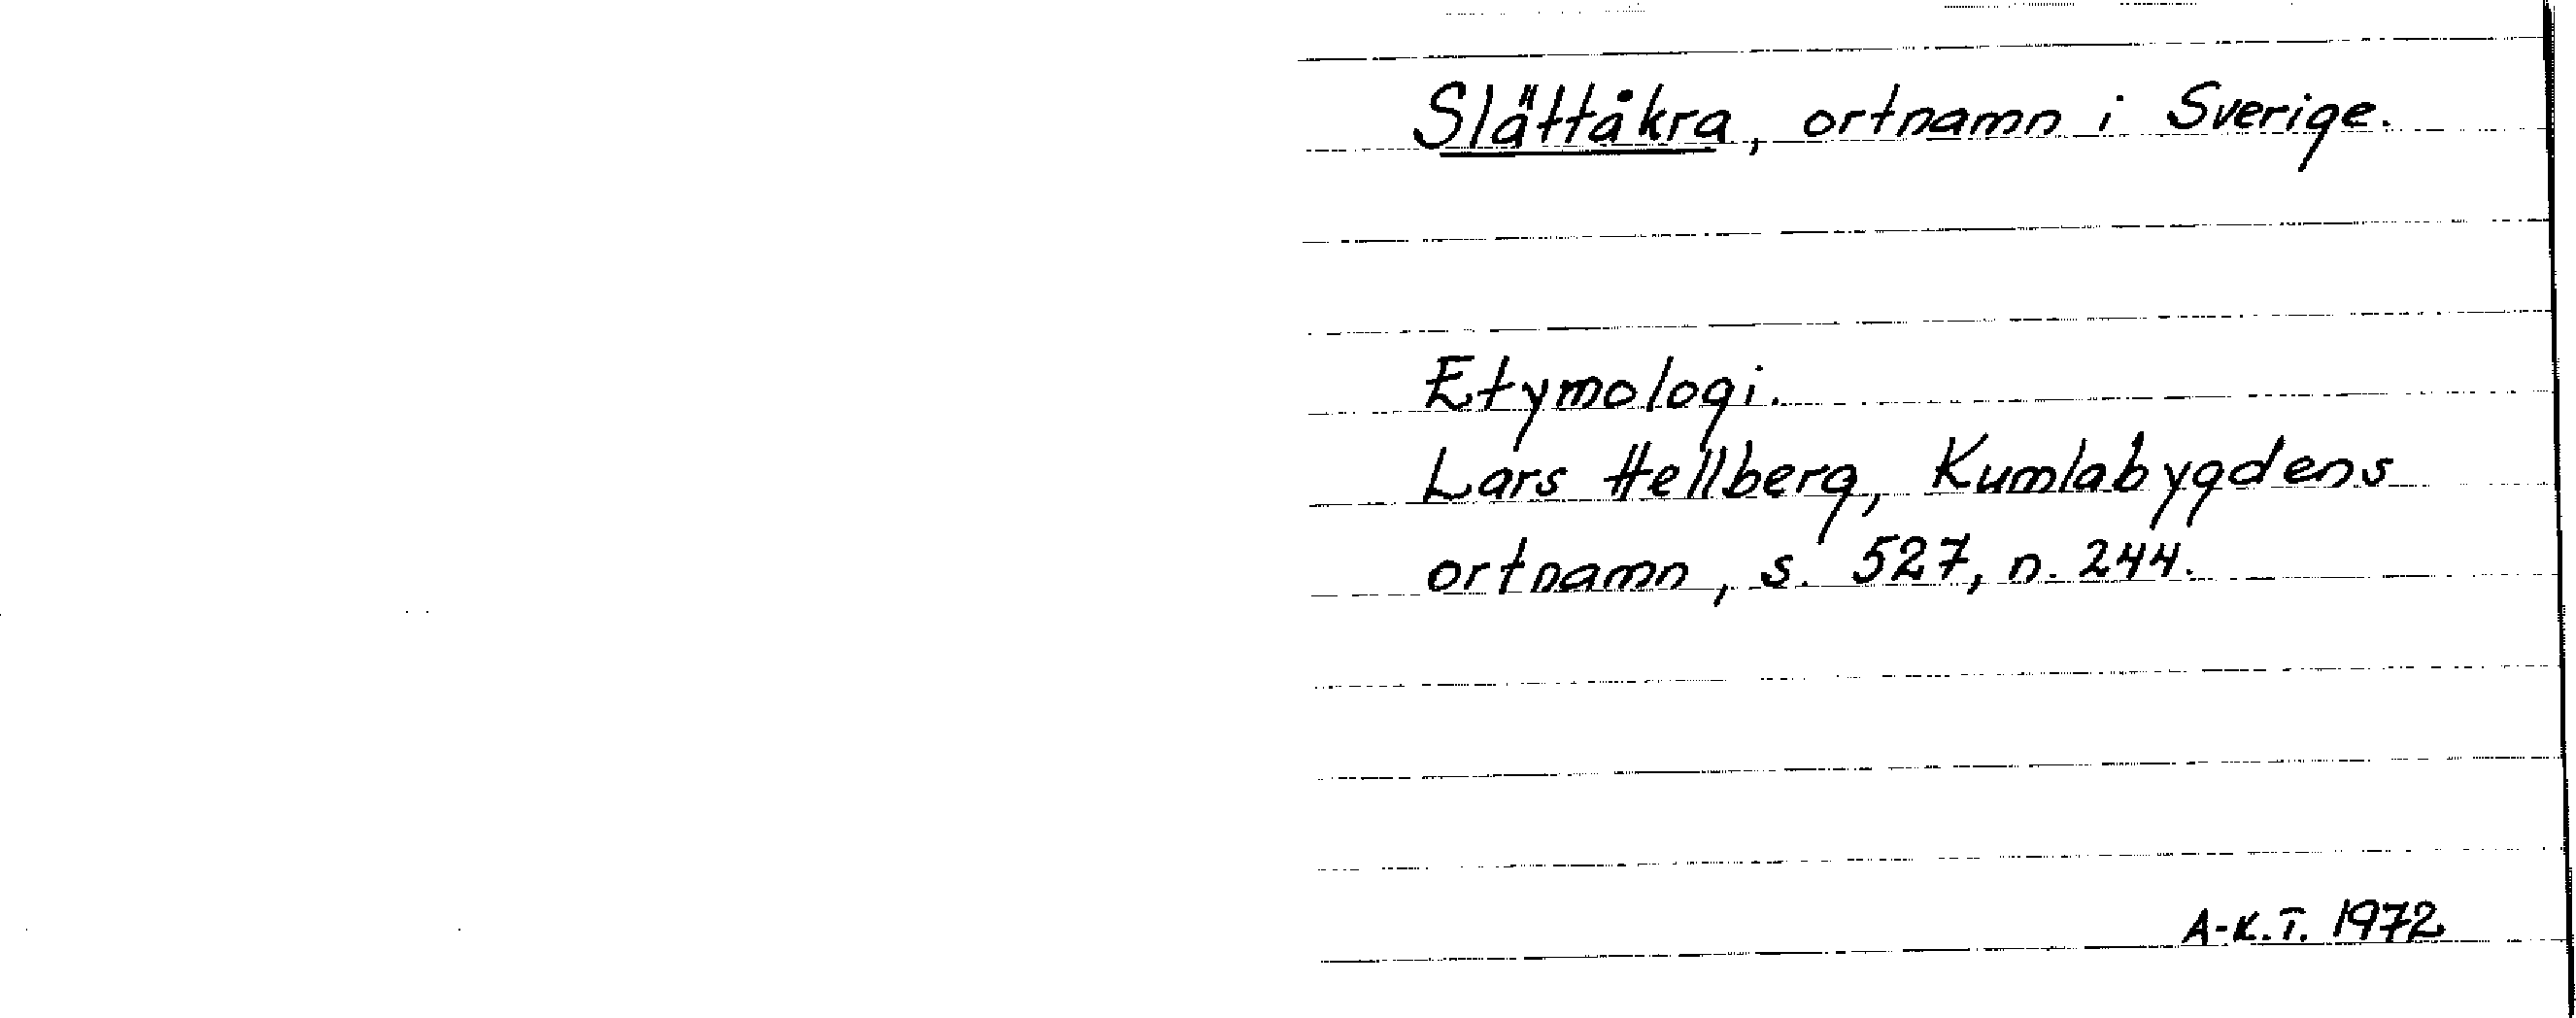 Slättåkra, ortnamn i Sverige.
Etymologi.
Lars Hellberg, Kumlabygdens
ortnamn, s. 527, n. 244.
A-K.T. 1972